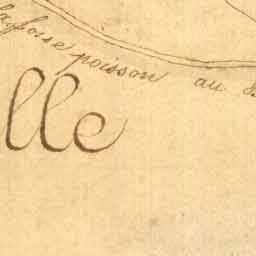 lafosse poisson au
lle